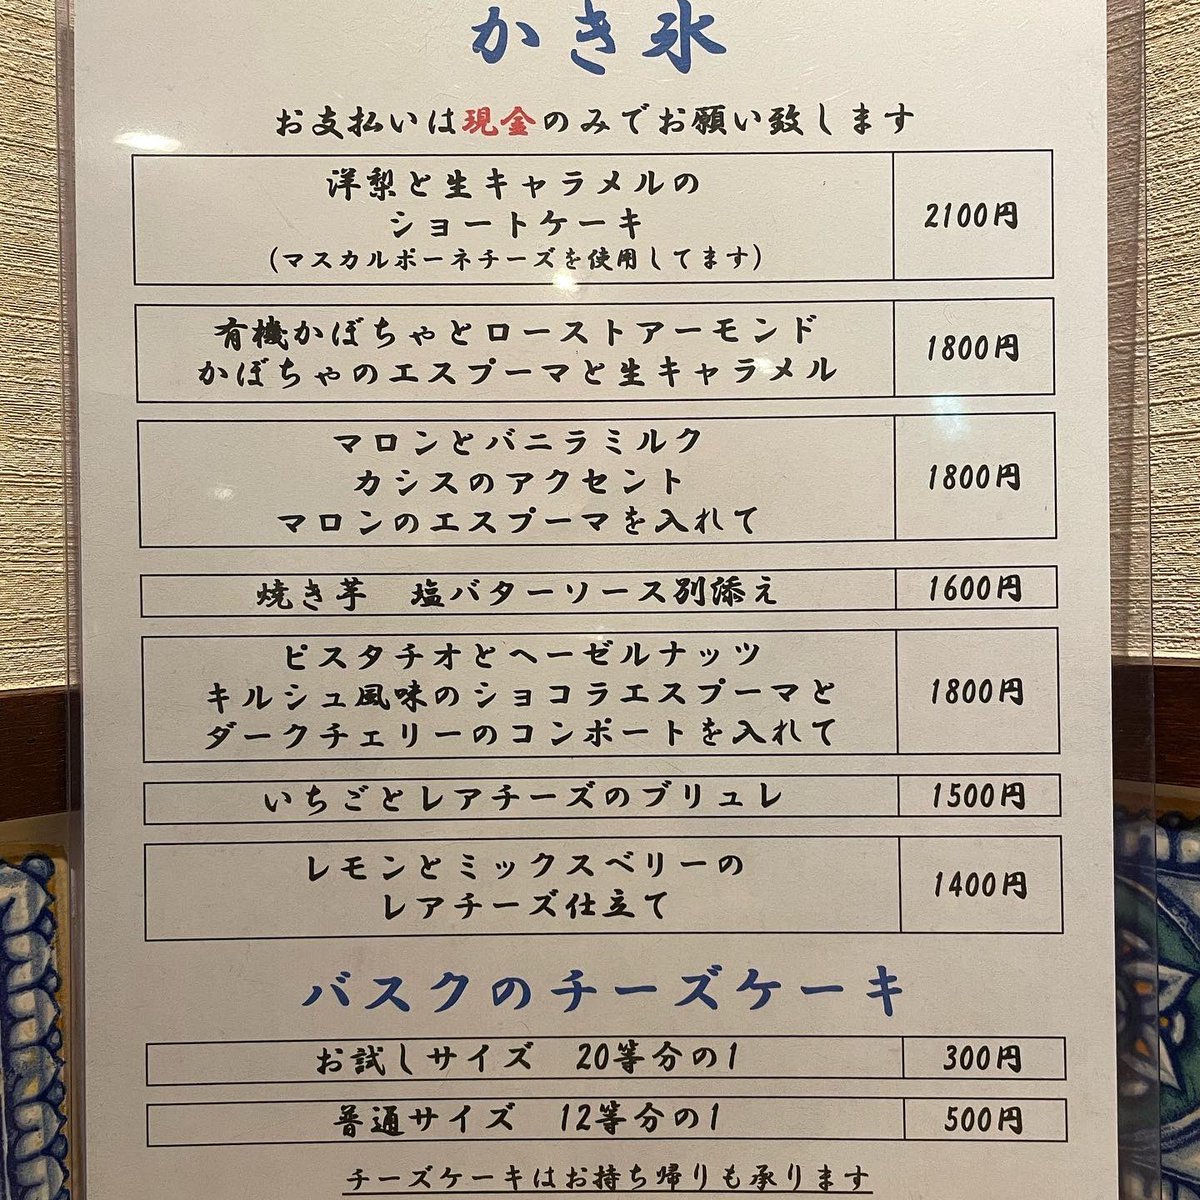 かき氷
お支払いは現金のみでお願い致します
洋梨と生キャラメルの
ショートケーキ
(マスカルポーネチーズを使用してます)
2100円
有機かぼちゃとローストアーモンド
かぼちゃのエスプーマと生キャラメル
1800円
マロンとバニラミルク
カシスのアクセント
マロンのエスプーマを入れて
1800円
焼き芋 塩バターソース別添え
1600円
ピスタチオとヘーゼルナッツ
キルシュ風味のショコラエスプーマと
ダークチェリーのコンポートを入れて
1800円
いちごとレアチーズのブリュレ
1500円
レモンとミックスベリーの
レアチーズ仕立て
1400円
バスクのチーズケーキ
お試しサイズ 20等分の1
300円
普通サイズ 12等分の1
500円
チーズケーキはお持ち帰りも承ります